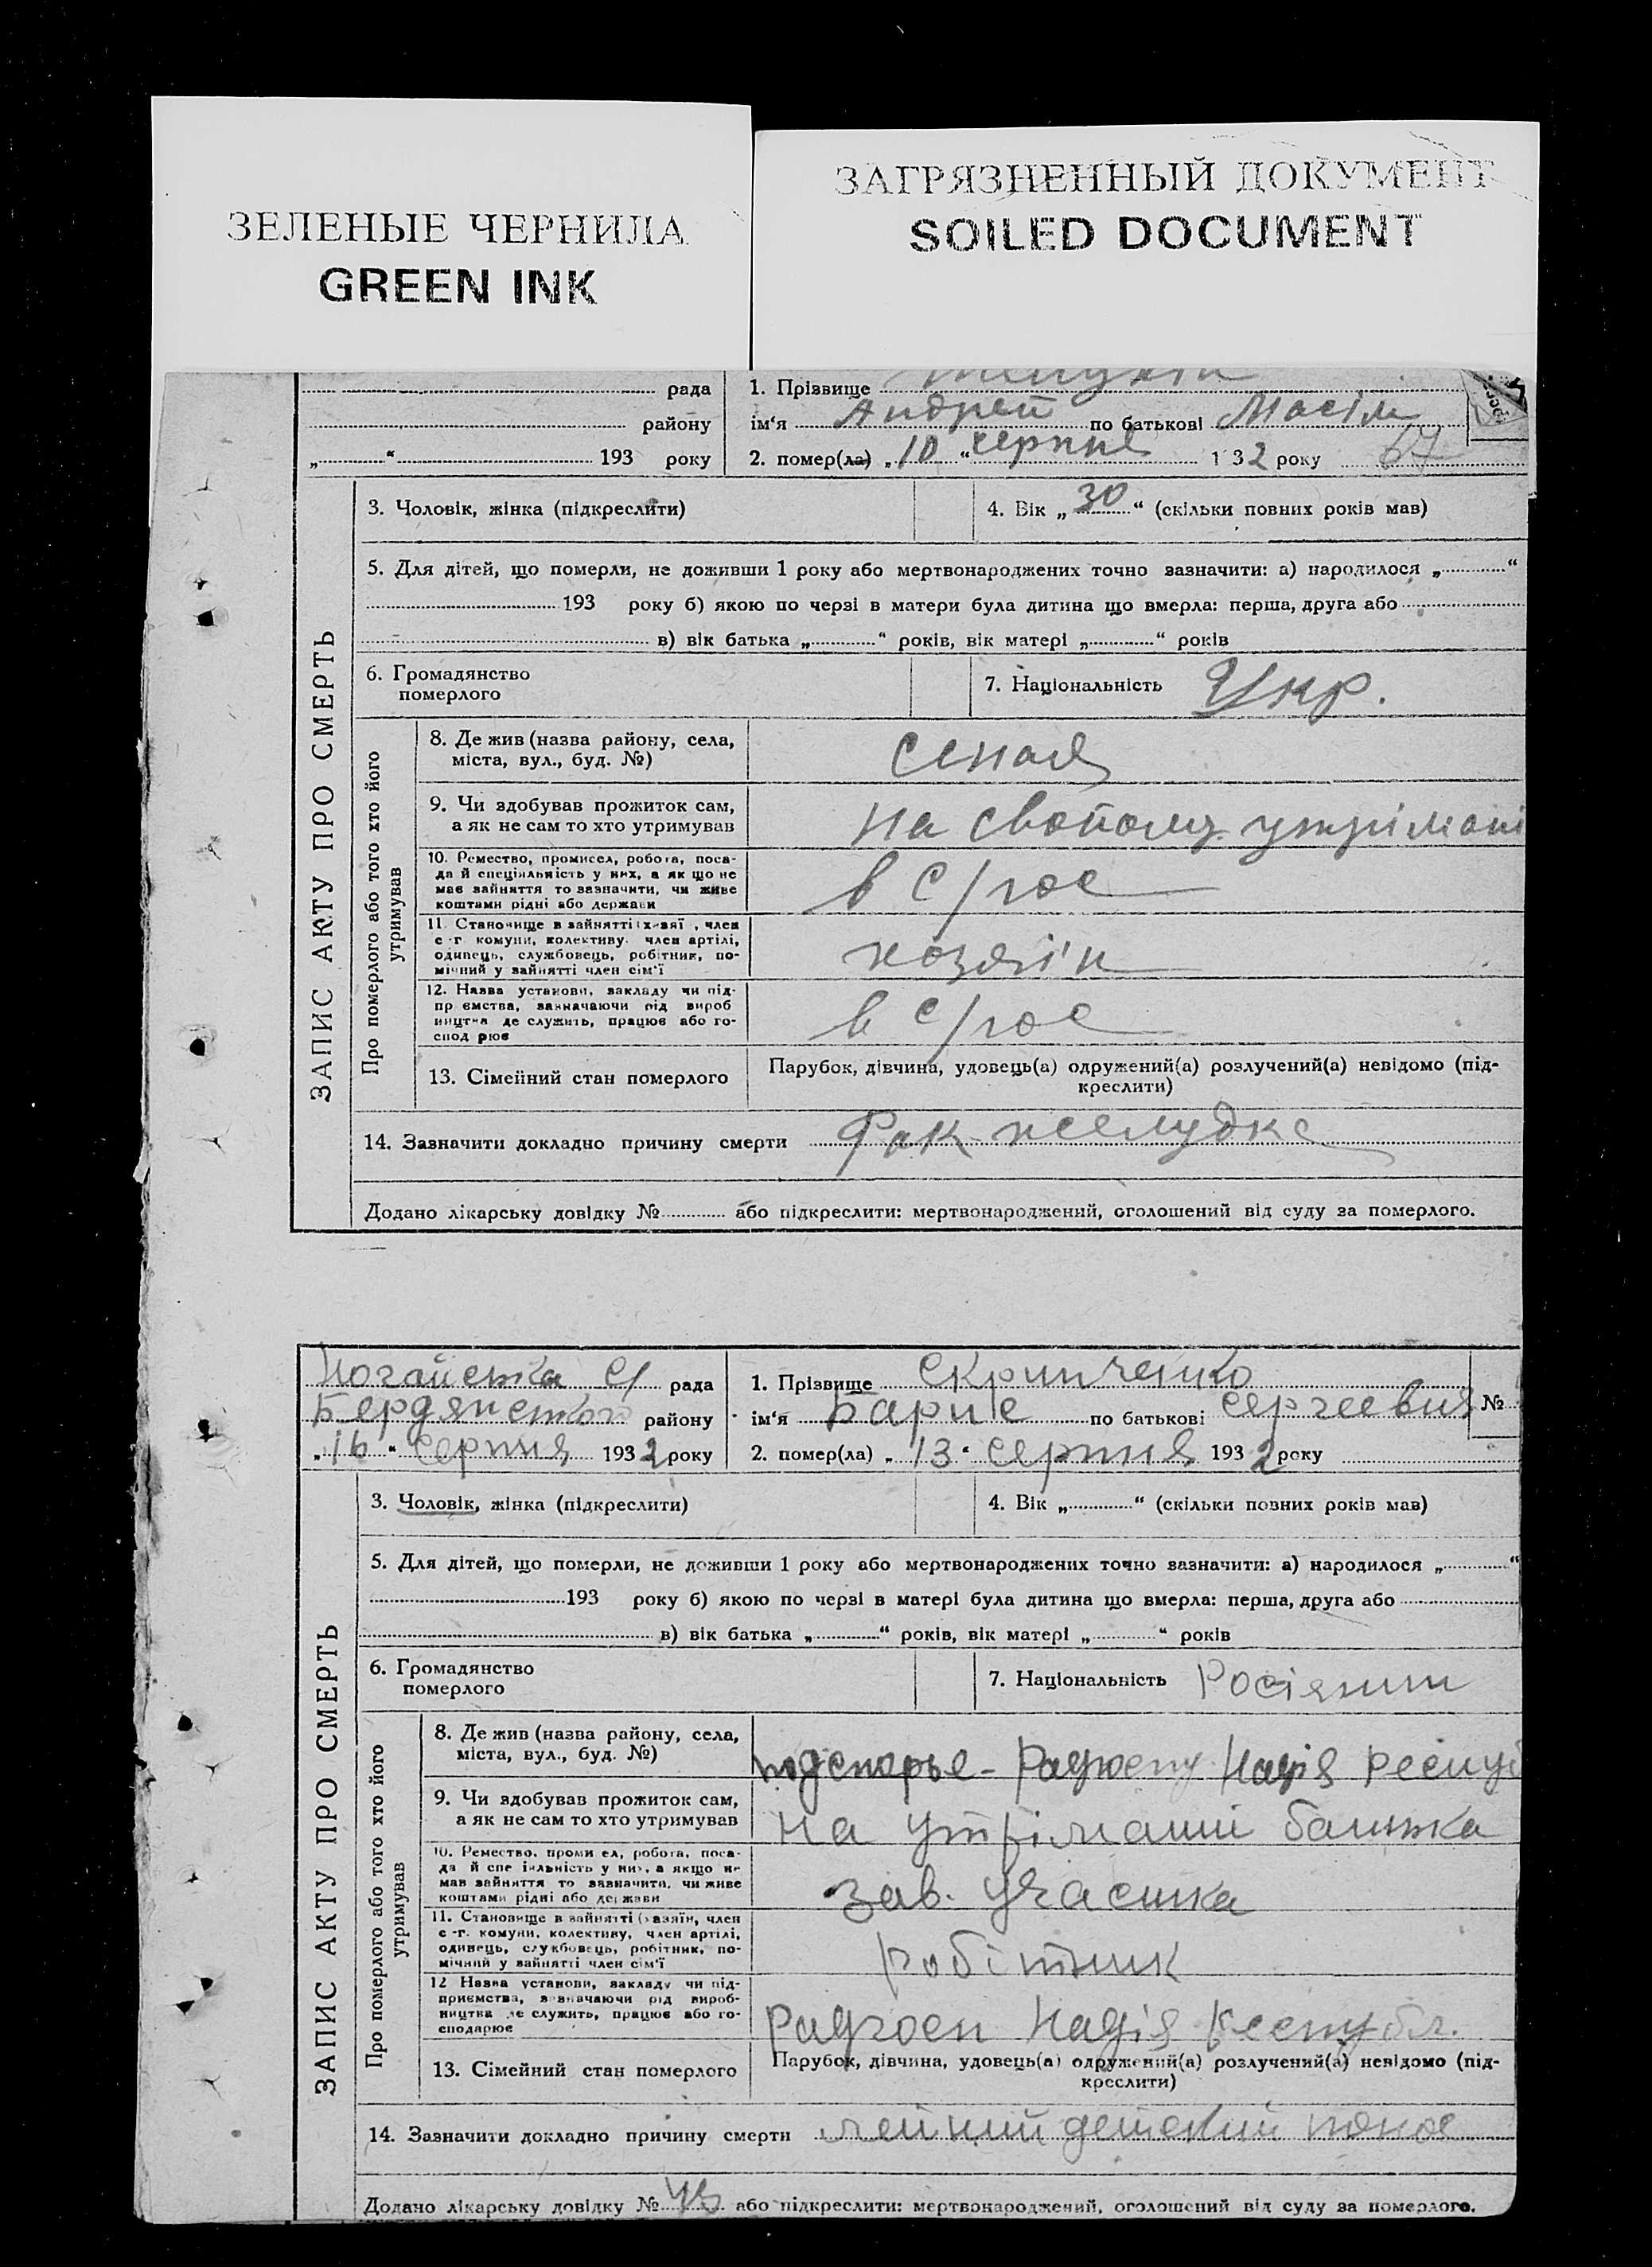 ЗЕЛЕНЫЕ ЧЕРНИЛА
GREEN INK
ЗАГРЯЗНЕННЫЙ ДОКУМЕНТ
SOILED DOCUMENT
рада
району
„ “ 193 року
1. Прізвище
ім‘я Андрей по батькові Масім
2. помер(ла) „10“ черпня 1 32 року 67
ЗАПИС АКТУ ПРО СМЕРТЬ
3. Чоловік, жінка (підкреслити)
4. Вік „30“ (скільки повних років мав)
5. Для дітей, що померли, не доживши 1 року або мертвонароджених точно зазначити: а) народилося „ “
193 року б) якою по черзі в матери була дитина що вмерла: перша, друга або
в) вік батька „ “ років, вік матері „ “ років
6. Громадянство
померлого
7. Національність Укр.
Про померлого або того хто його
утримував
8. Де жив (назва району, села,
міста, вул., буд. №)
Сеная
9. Чи здобував прожиток сам,
а як не сам то хто утримував
на свойому утрімані
10. Ремество, промисел, робота, поса-
да й спеціяльність у них, а як що не
має зайняття то зазначити, чи живе
коштами рідні або держави
в с/гос
11. Становище в зайнятті (х зяї , член
с -г. комуни, колективу, член артілі,
одинець, службовець, робітник, по-
мічний у зайнятті член сім‘ї
хозяїн
12. Назва установи, закладу чи під-
пр ємства, зазначаючи рід вироб
ництва де служить, працює або го-
спод рює
в с/гос
13. Сімейний стан померлого
Парубок, дівчина, удовець(а) одружений(а) розлучений(а) невідомо (під-
креслити)
14. Зазначити докладно причину смерти Рак желудка
Додано лікарську довідку № або підкреслити: мертвонароджений, оголошений від суду за померлого.
Ногайська С/ рада
Бердянского району
„16“ серпня 1932 року
1. Прізвище Скрипченко
ім‘я Барис по батькові Сергеевич
№
2. помер(ла) „13“ серпня 1932 року
ЗАПИС АКТУ ПРО СМЕРТЬ
3. Чоловік, жінка (підкреслити)
4. Вік „ “ (скільки повних років мав)
5. Для дітей, що померли, не доживши 1 року або мертвонароджених точно зазначити: а) народилося „ “
193 року б) якою по черзі в матері була дитина що вмерла: перша, друга або
в) вік батька „ “ років, вік матері „ “ років
6. Громадянство
померлого
7. Національність Росіянин
Про померлого або того хто його
утримував
8. Де жив (назва району, села,
міста, вул., буд. №)
Радгоспу Надія
9. Чи здобував прожиток сам,
а як не сам то хто утримував
на утріманні батька
10. Ремество, проми ел, робота, поса-
да й спе іяльність у них, а якщо не
мав зайняття то зазначити, чи живе
коштами рідні або держави
зав. участка
11. Становище в зайнятті (хазяїн, член
с -г. комуни, колективу, член артілі,
одинець, службовець, робітник, по-
мічний у зайнятті член сім‘ї
робітник
12 Назва установи, закладу чи під-
приємства, зазначаючи рід вироб-
ництва де служить, працює або го-
сподарює
Радгосп Надія Республ.
13. Сімейний стан померлого
Парубок, дівчина, удовець(а) одружений(а) розлучений(а) невідомо (під-
креслити)
14. Зазначити докладно причину смерти детский понос
Додано лікарську довідку № або підкреслити: мертвонароджений, оголошений від суду за померлого.